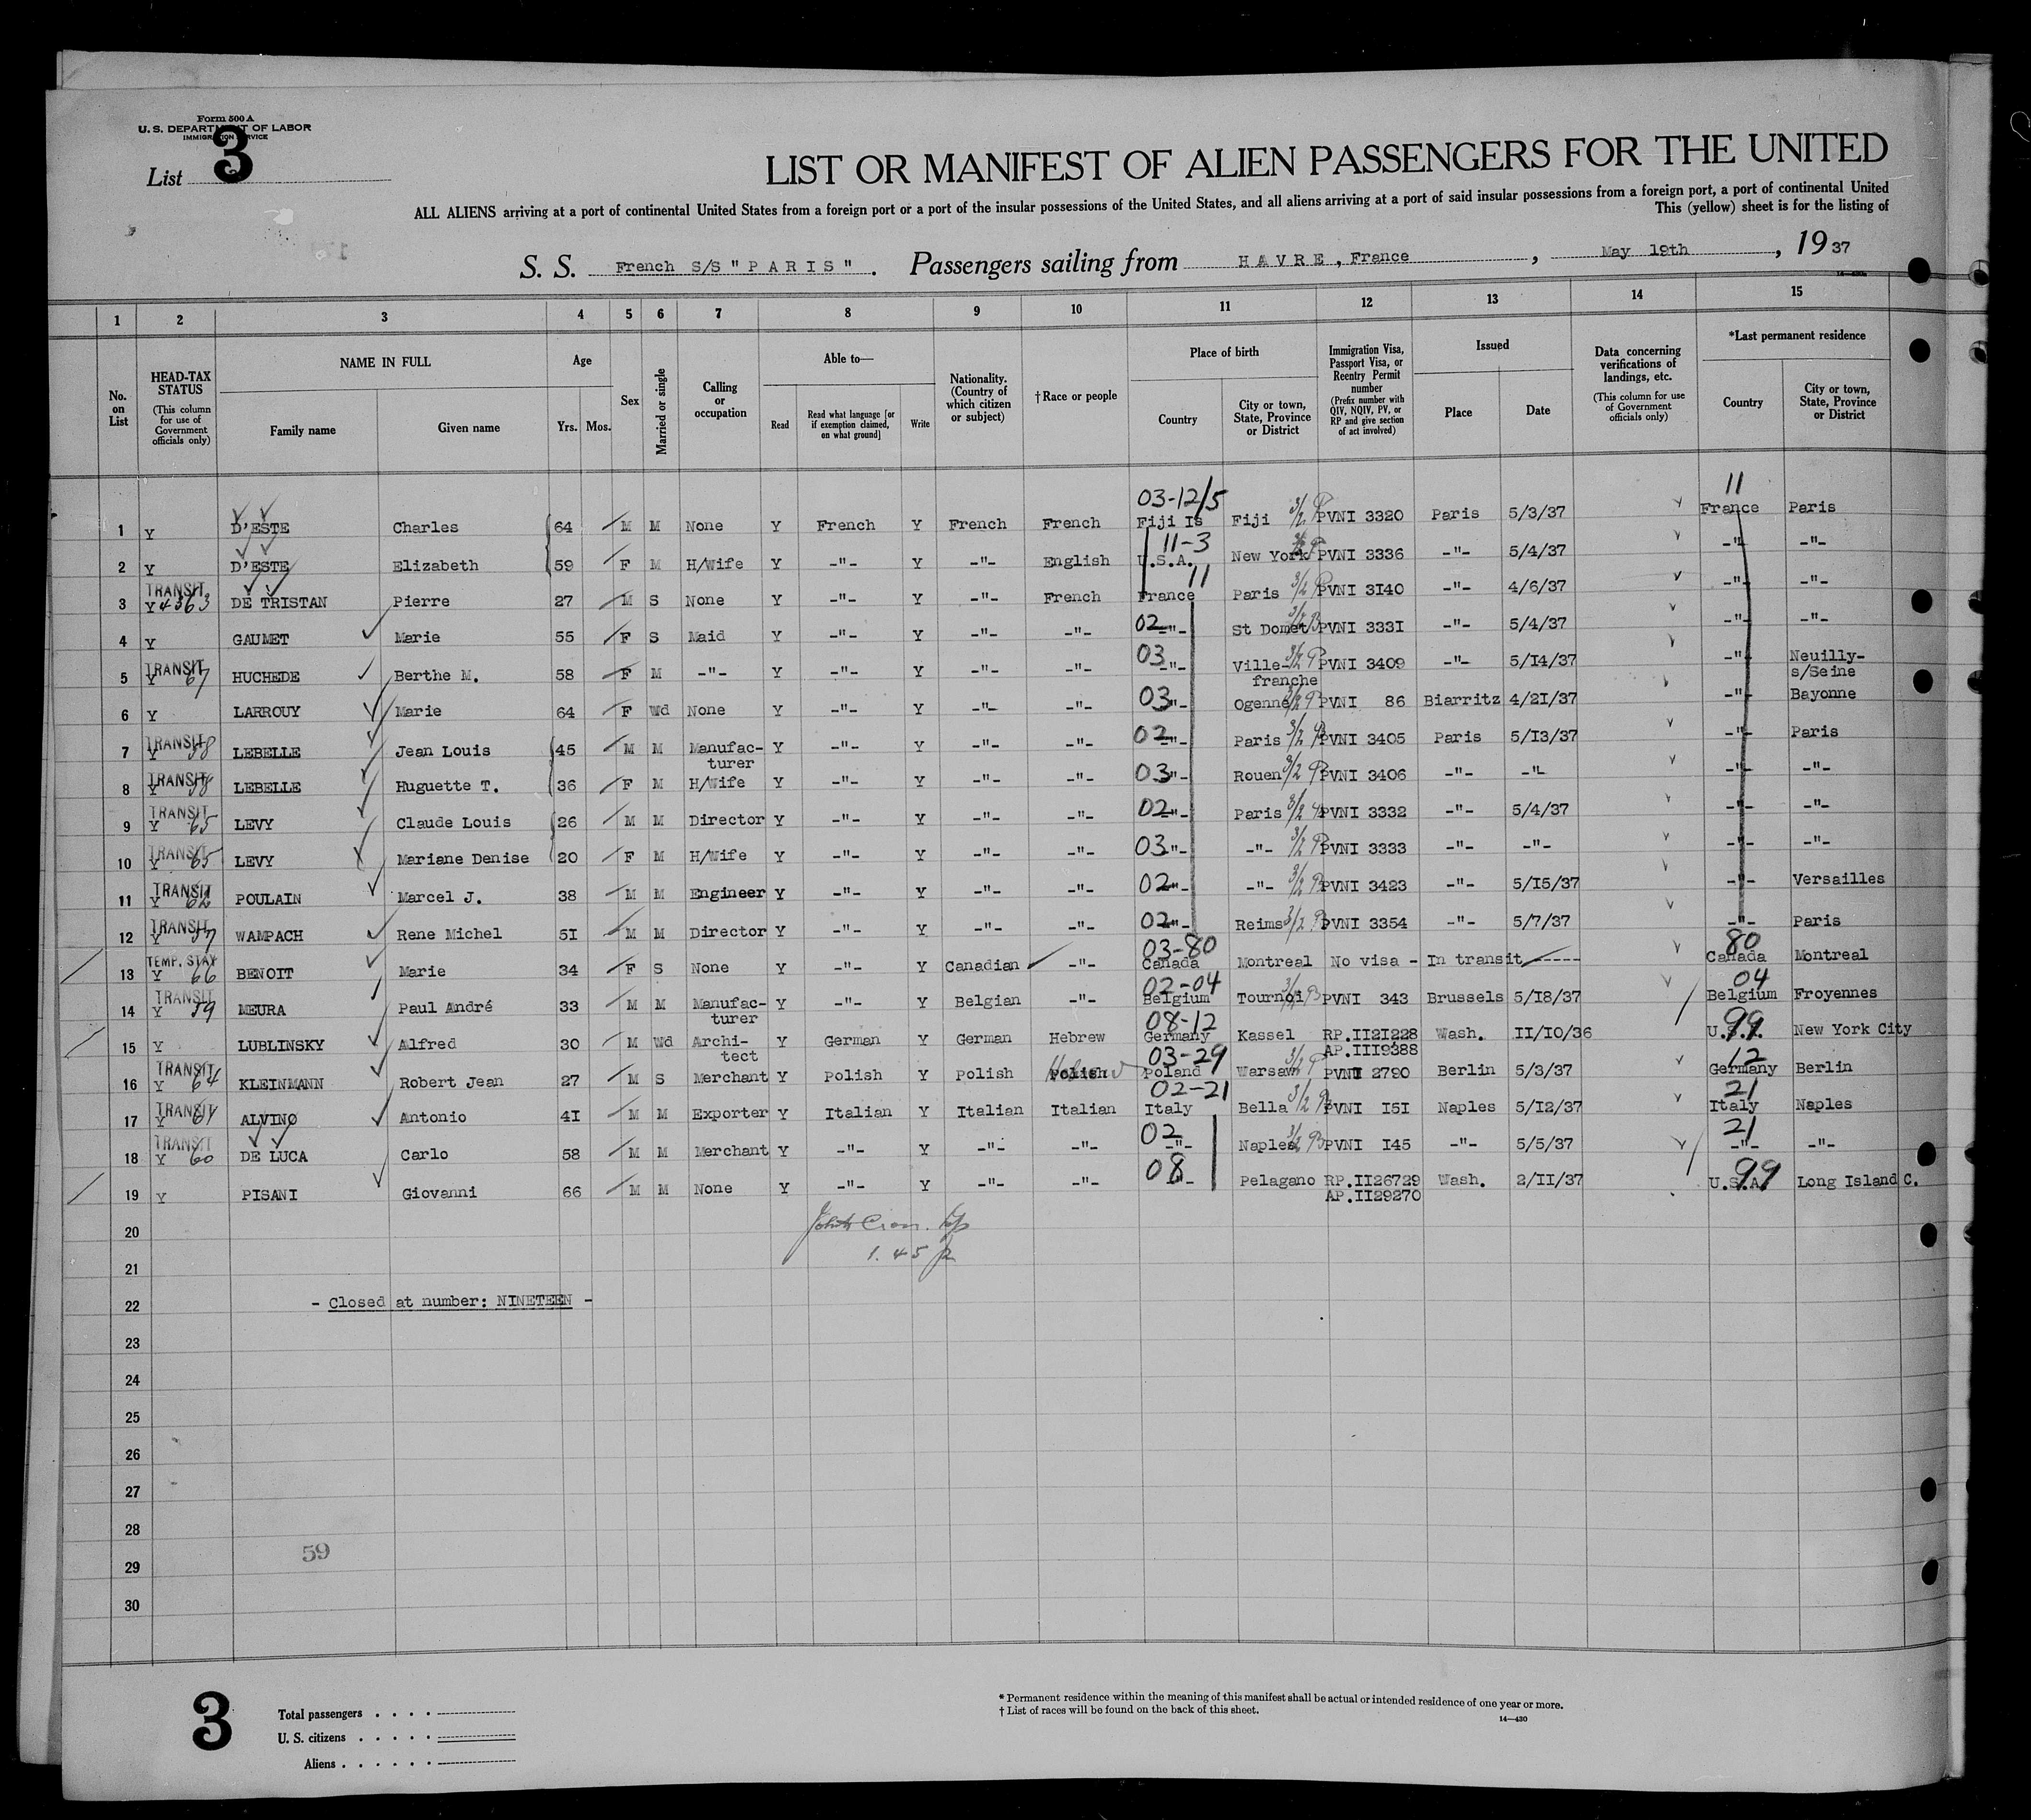 Form 500 A
U. S. DEPARTMENT OF LABOR
IMMIGRATION SERVICE
List 3
LIST OR MANIFEST OF ALIEN PASSENGERS FOR THE UNITED
ALL ALIENS arriving at a port of continental United States from a foreign port or a port of the insular possessions of the United States, and all aliens arriving at a port of said insular possessions from a foreign port, a port of continental United
This (yellow) sheet is for the listing of
S. S. French S/S "P A R I S". Passengers sailing from H A V R E, France, May 19th, 1937
14-430
1 2 3 4 5 6 7 8 9 10 11 12 13 14 15
No. on List
HEAD-TAX STATUS (This column for use of Government officials only)
NAME IN FULL Family name Given name
Age Yrs. Mos.
Sex
Married or single
Calling or occupation
Able to— Read Read what language [or if exemption claimed, on what ground] Write
Nationality. (Country of which citizen or subject)
† Race or people
Place of birth Country City or town, State, Province or District
Immigration Visa, Passport Visa, or Reentry Permit number (Prefix number with QIV, NQIV, PV, or RP and give section of act involved)
Issued Place Date
Data concerning verifications of landings, etc. (This column for use of Government officials only)
*Last permanent residence Country City or town, State, Province or District
03-12/5 11
1 Y D'ESTE Charles 64 M M None Y French Y French French Fiji Is Fiji 3/2 PVNI 3320 Paris 5/3/37 France Paris
11-3
2 Y D'ESTE Elizabeth 59 F M H/Wife Y -"- Y -"- English U.S.A. New York PVNI 3336 -"- 5/4/37 -"- -"-
TRANSIT 11
3 Y 4363 DE TRISTAN Pierre 27 M S None Y -"- Y -"- French France Paris 3/2 PVNI 3I40 -"- 4/6/37 -"- -"-
4 Y GAUMET Marie 55 F S Maid Y -"- Y -"- -"- 02 -"- St Domet 3/2 PVNI 333I -"- 5/4/37 -"- -"-
TRANSIT
5 Y 67 HUCHEDE Berthe M. 58 F M -"- Y -"- Y -"- -"- 03 -"- Ville-franche 3/2 PVNI 3409 -"- 5/I4/37 -"- Neuilly-s/Seine
6 Y LARROUY Marie 64 F Wd None Y -"- Y -"- -"- 03 -"- Ogenne 3/2 PVNI 86 Biarritz 4/2I/37 -"- Bayonne
TRANSIT
7 Y 58 LEBELLE Jean Louis 45 M M Manufac-turer Y -"- Y -"- -"- 02 -"- Paris 3/2 PVNI 3405 Paris 5/I3/37 -"- Paris
TRANSIT
8 Y 58 LEBELLE Huguette T. 36 F M H/Wife Y -"- Y -"- -"- 03 -"- Rouen 3/2 PVNI 3406 -"- -"- -"- -"-
TRANSIT
9 Y 65 LEVY Claude Louis 26 M M Director Y -"- Y -"- -"- 02 -"- Paris 3/2 PVNI 3332 -"- 5/4/37 -"- -"-
TRANSIT
10 Y 65 LEVY Mariane Denise 20 F M H/Wife Y -"- Y -"- -"- 03 -"- -"- 3/2 PVNI 3333 -"- -"- -"- -"-
TRANSIT
11 Y 62 POULAIN Marcel J. 38 M M Engineer Y -"- Y -"- -"- 02 -"- -"- 3/2 PVNI 3423 -"- 5/I5/37 -"- Versailles
TRANSIT
12 Y 57 WAMPACH Rene Michel 5I M M Director Y -"- Y -"- -"- 02 -"- Reims 3/2 PVNI 3354 -"- 5/7/37 -"- Paris
TEMP. STAY 03-80 80
13 Y 66 BENOIT Marie 34 F S None Y -"- Y Canadian -"- Canada Montreal No visa - In transit ----- Canada Montreal
TRANSIT 02-04 04
14 Y 59 MEURA Paul André 33 M M Manufac-turer Y -"- Y Belgian -"- Belgium Tournoi PVNI 343 Brussels 5/I8/37 Belgium Froyennes
08-12 99
15 Y LUBLINSKY Alfred 30 M Wd Archi-tect Y German Y German Hebrew Germany Kassel RP.II2I228 AP.III9388 Wash. II/I0/36 U.S.A. New York City
TRANSIT Hebrew 03-29 12
16 Y 64 KLEINMANN Robert Jean 27 M S Merchant Y Polish Y Polish Polish Poland Warsaw 3/2 PVNI 2790 Berlin 5/3/37 Germany Berlin
TRANSIT 02-21 21
17 Y 61 ALVINO Antonio 4I M M Exporter Y Italian Y Italian Italian Italy Bella 3/2 PVNI I5I Naples 5/I2/37 Italy Naples
TRANSIT 02 21
18 Y 60 DE LUCA Carlo 58 M M Merchant Y -"- Y -"- -"- -"- Naples 3/2 PVNI I45 -"- 5/5/37 -"- -"-
08 99
19 Y PISANI Giovanni 66 M M None Y -"- Y -"- -"- -"- Pelagano RP.II26729 AP.II29270 Wash. 2/II/37 U.S.A. Long Island C.
20
1.45
21
22 - Closed at number: NINETEEN -
23
24
25
26
27
28
59
29
30
3
Total passengers
U. S. citizens
Aliens
* Permanent residence within the meaning of this manifest shall be actual or intended residence of one year or more.
† List of races will be found on the back of this sheet.
14—430